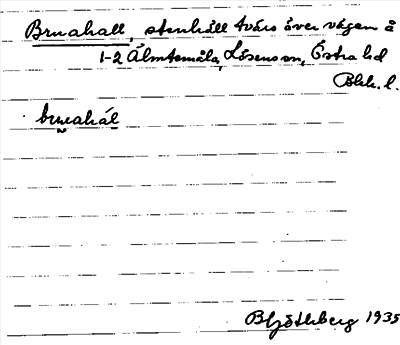 Bruahall, stenhäll tvärs över vägen å
1-2 Älmtemåla, Lösens sn, Östra hd
Blek. l.
bruahál
B Hjöthberg 1935